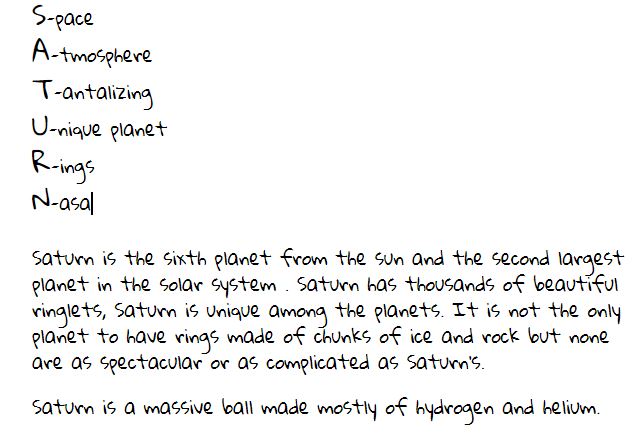 S-pace
A-tmosphere
T-antalizing
U-nique planet
R-ings
N-asa
Saturn is the sixth planet from the sun and the second largest
planet in the solar system . Saturn has thousands of beautiful
ringlets, Saturn is unique among the planets. It is not the only
planet to have rings made of chunks of ice and rock but none
are as spectacular or as complicated as Saturn's.
Saturn is a massive ball made mostly of hydrogen and helium.